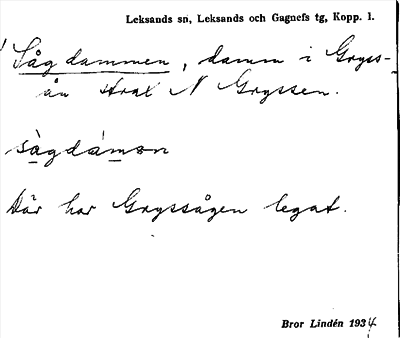 Leksands sn, Leksands och Gagnefs tg, Kopp. l.
Sågdammen, damm i Gryss-
ån strax N Gryssen.
sàgdámǝn
Där har Gryssågen legat.
Bror Lindén 1934